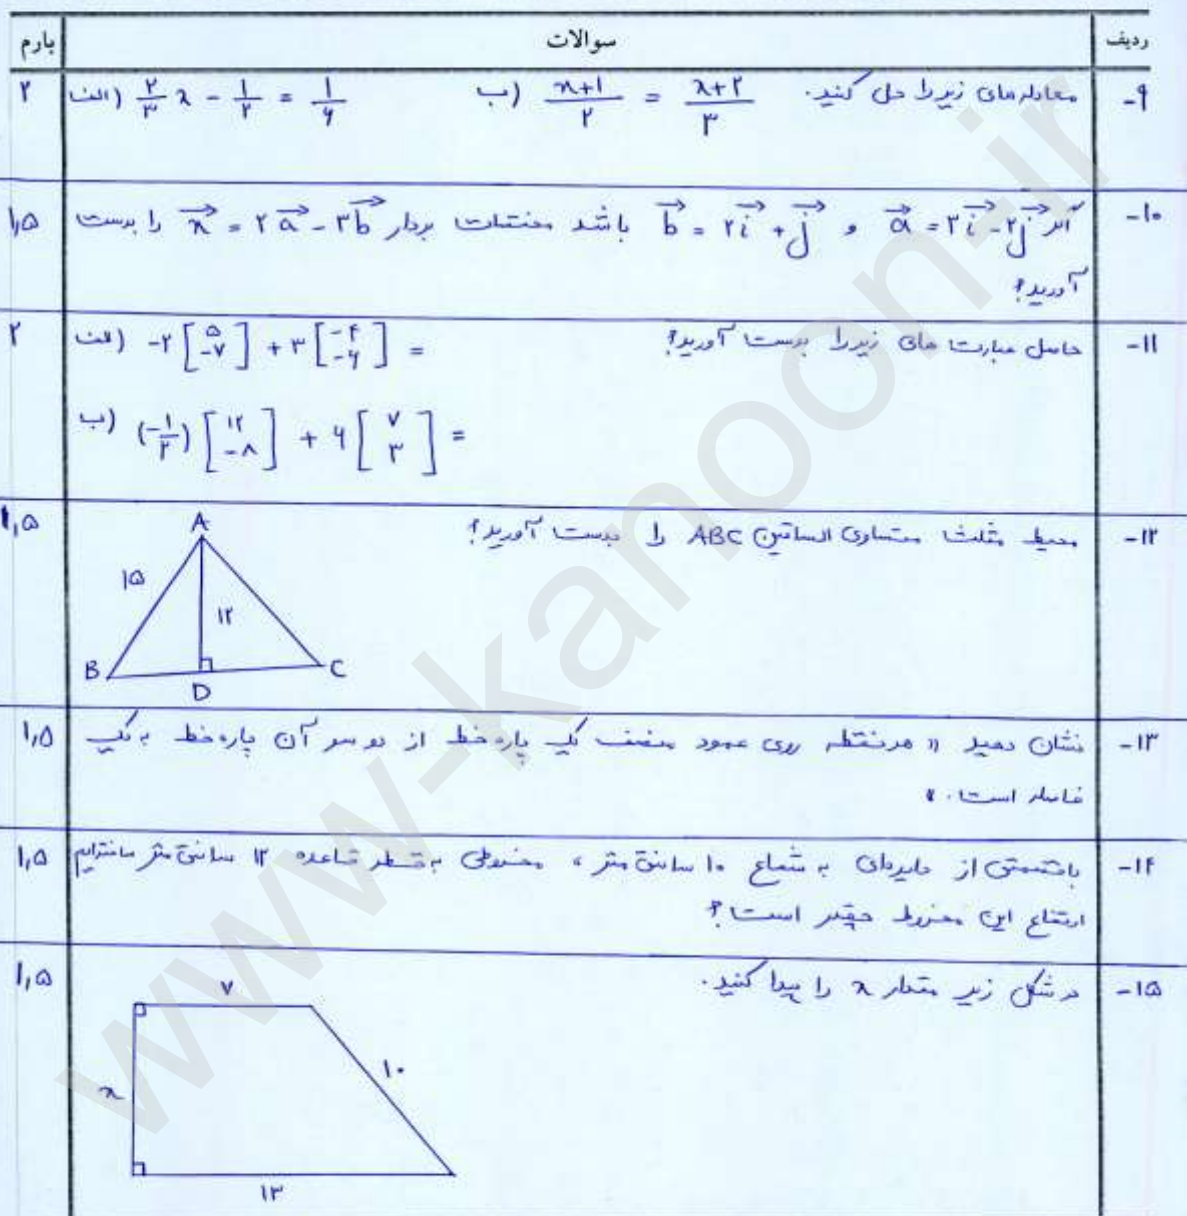 ردیف سوالات بارم
۹- معادله های زیر را حل کنید. ب) (x+1)/۲ = (x+۲)/۳ الف) ۲/۳ x - ۱/۲ = ۱/۶ ۲
۱۰- اگر a = ۳i - ۲j و b = ۲i + j باشد مختصات بردار x = ۲a - ۳b را بدست ۱,۵
آورید؟
۱۱- حاصل عبارت های زیر را بدست آورید؟ الف) -۲[۵ -۷] + ۳[-۴ -۶] = ۲
ب) (-۱/۲)[۱۲ -۸] + ۶[۷ ۳] =
۱۲- محیط مثلث متساوی الساقین ABC را بدست آورید؟ ۱,۵
A
۱۵
۱۲
B
C
D
۱۳- نشان دهید «هرنقطه روی عمود منصف یک پاره خط از دو سر آن پاره خط به یک ۱,۵
فاصله است.»
۱۴- با قسمتی از دایره‌ای به شعاع ۱۰ سانتی متر، مخروطی به قطر قاعده ۱۲ سانتی متر ساخته‌ایم ۱,۵
ارتفاع این مخروط چقدر است؟
۱۵- در شکل زیر مقدار x را پیدا کنید. ۱,۵
۷
۱۰
x
۱۳
www-kanoon-ir